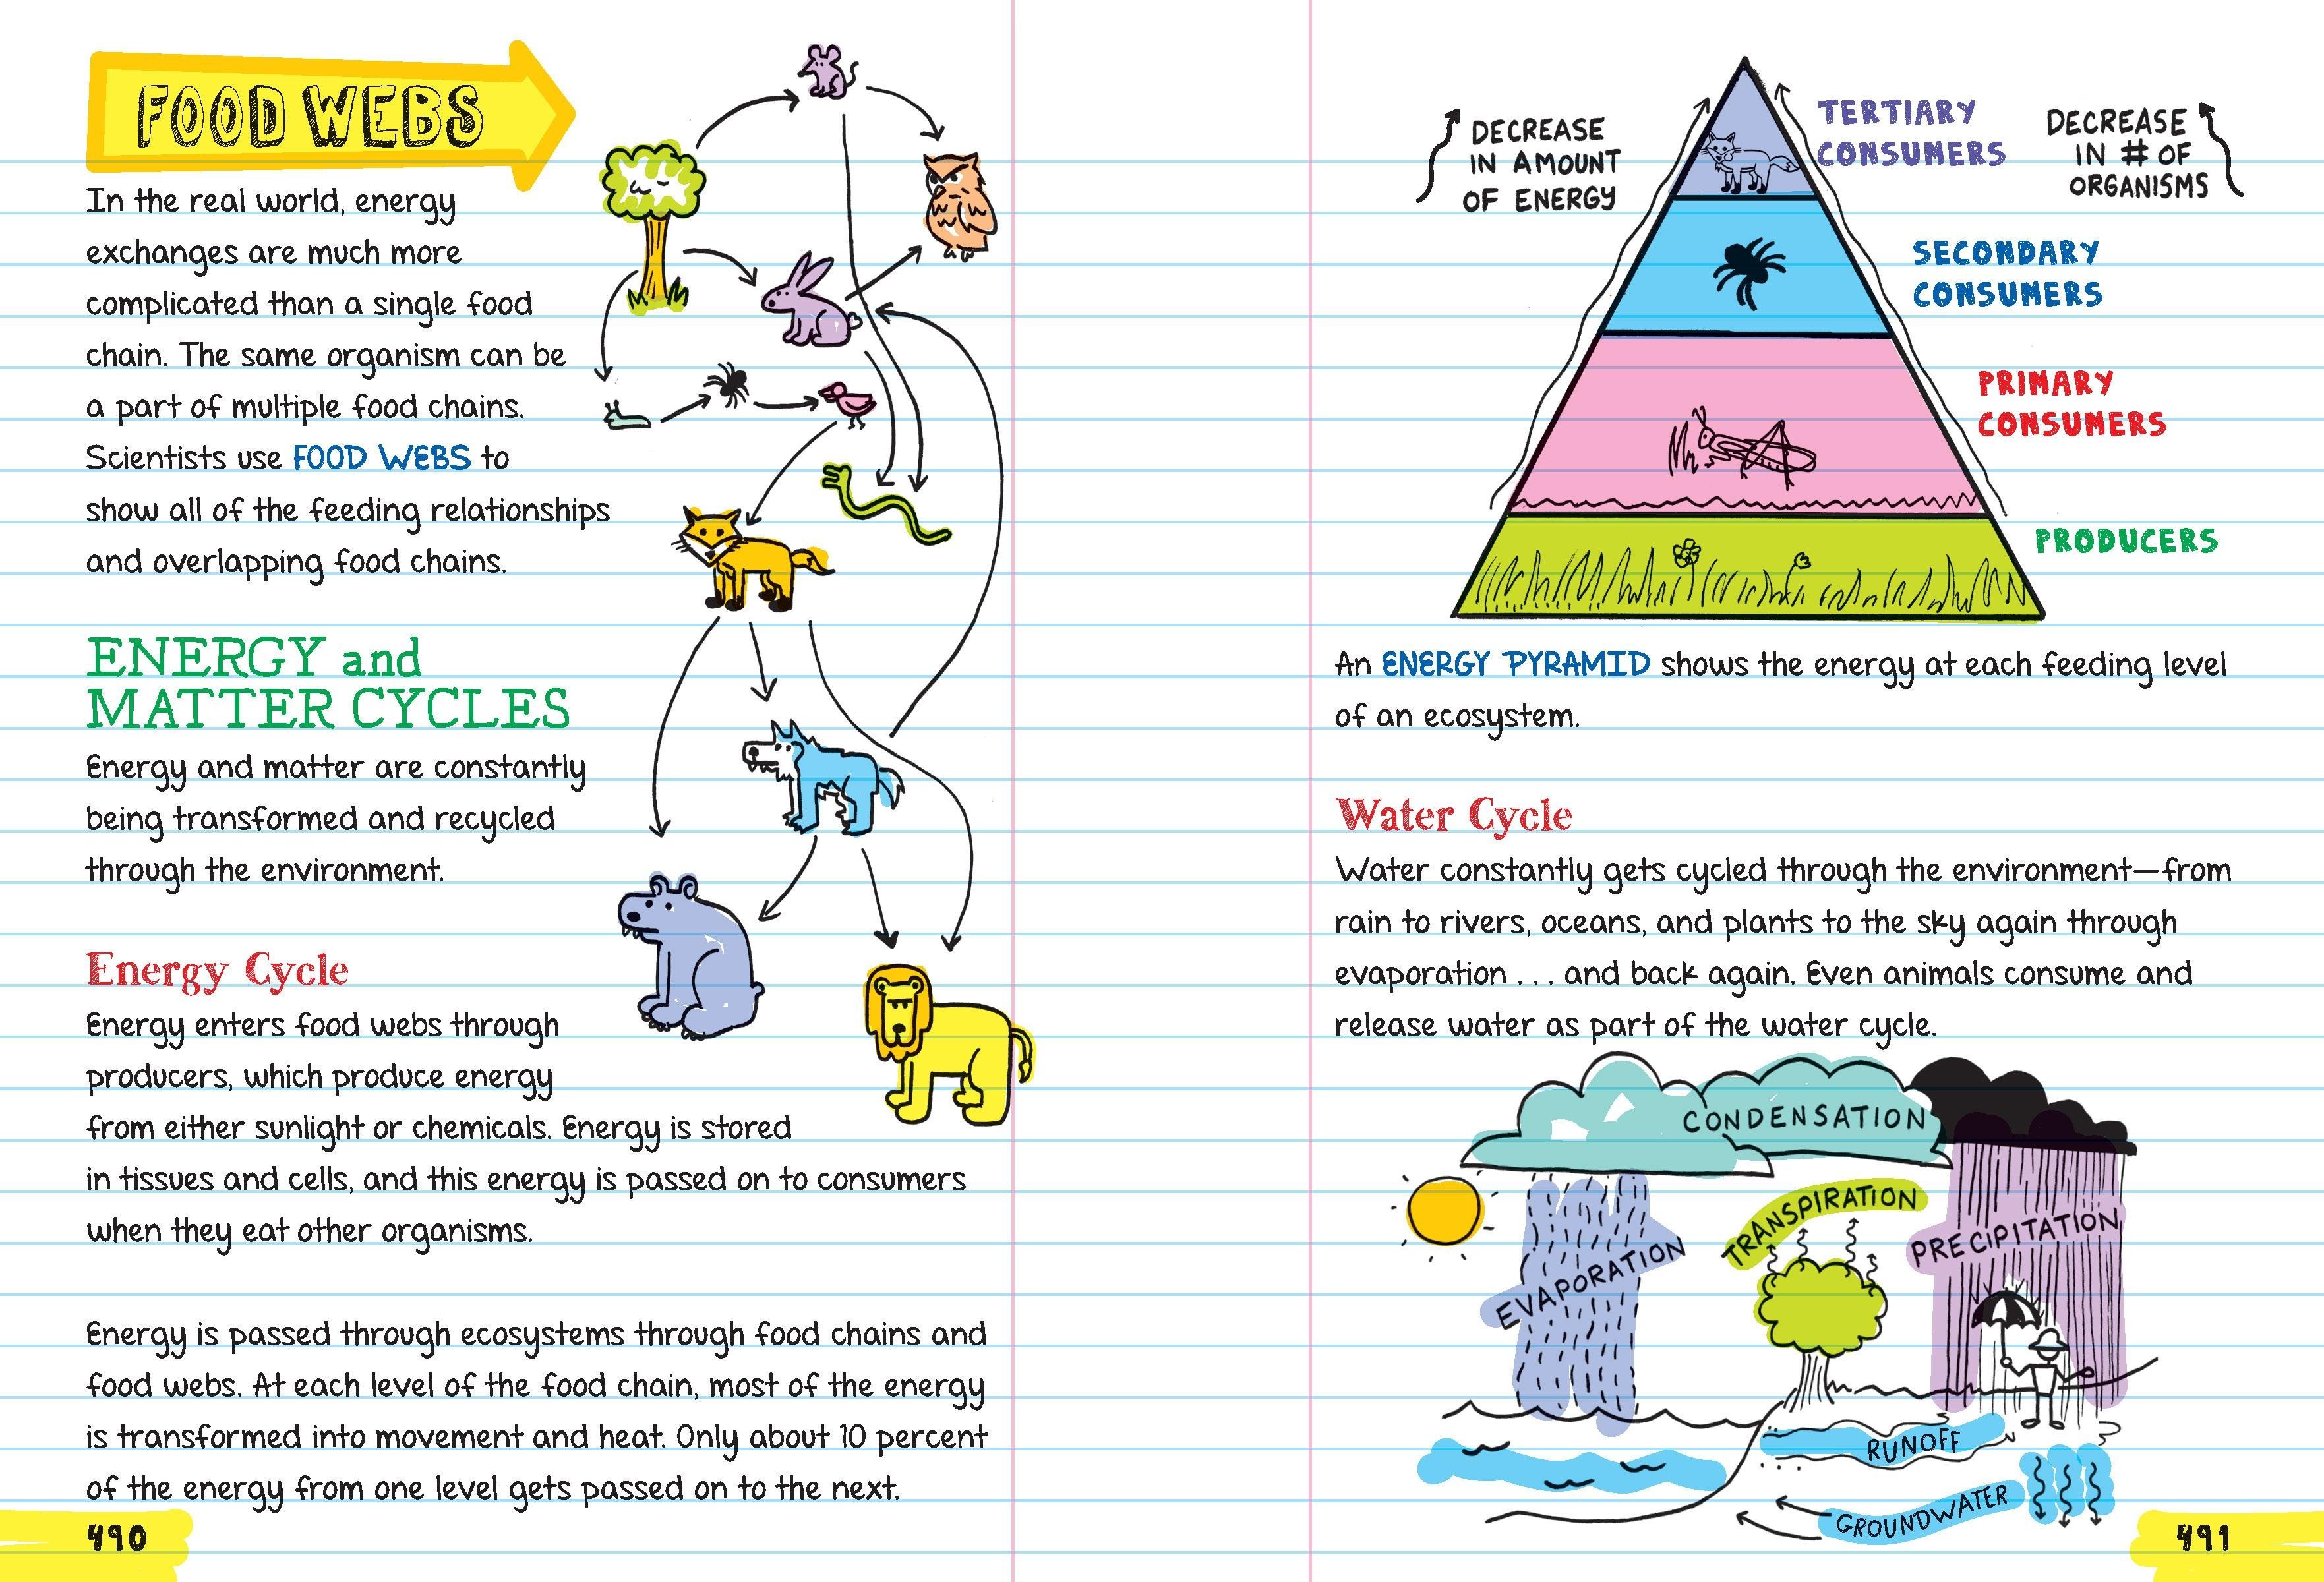 FOOD WEBS
In the real world, energy
exchanges are much more
complicated than a single food
chain. The same organism can be
a part of multiple food chains.
Scientists use FOOD WEBS to
show all of the feeding relationships
and overlapping food chains.
ENERGY and
MATTER CYCLES
Energy and matter are constantly
being transformed and recycled
through the environment.
Energy Cycle
Energy enters food webs through
producers, which produce energy
from either sunlight or chemicals. Energy is stored
in tissues and cells, and this energy is passed on to consumers
when they eat other organisms.
Energy is passed through ecosystems through food chains and
food webs. At each level of the food chain, most of the energy
is transformed into movement and heat. Only about 10 percent
of the energy from one level gets passed on to the next.
490
DECREASE
IN AMOUNT
OF ENERGY
TERTIARY
CONSUMERS
DECREASE
IN # OF
ORGANISMS
SECONDARY
CONSUMERS
PRIMARY
CONSUMERS
PRODUCERS
An ENERGY PYRAMID shows the energy at each feeding level
of an ecosystem.
Water Cycle
Water constantly gets cycled through the environment—from
rain to rivers, oceans, and plants to the sky again through
evaporation . . . and back again. Even animals consume and
release water as part of the water cycle.
CONDENSATION
EVAPORATION
TRANSPIRATION
PRECIPITATION
RUNOFF
GROUNDWATER
491